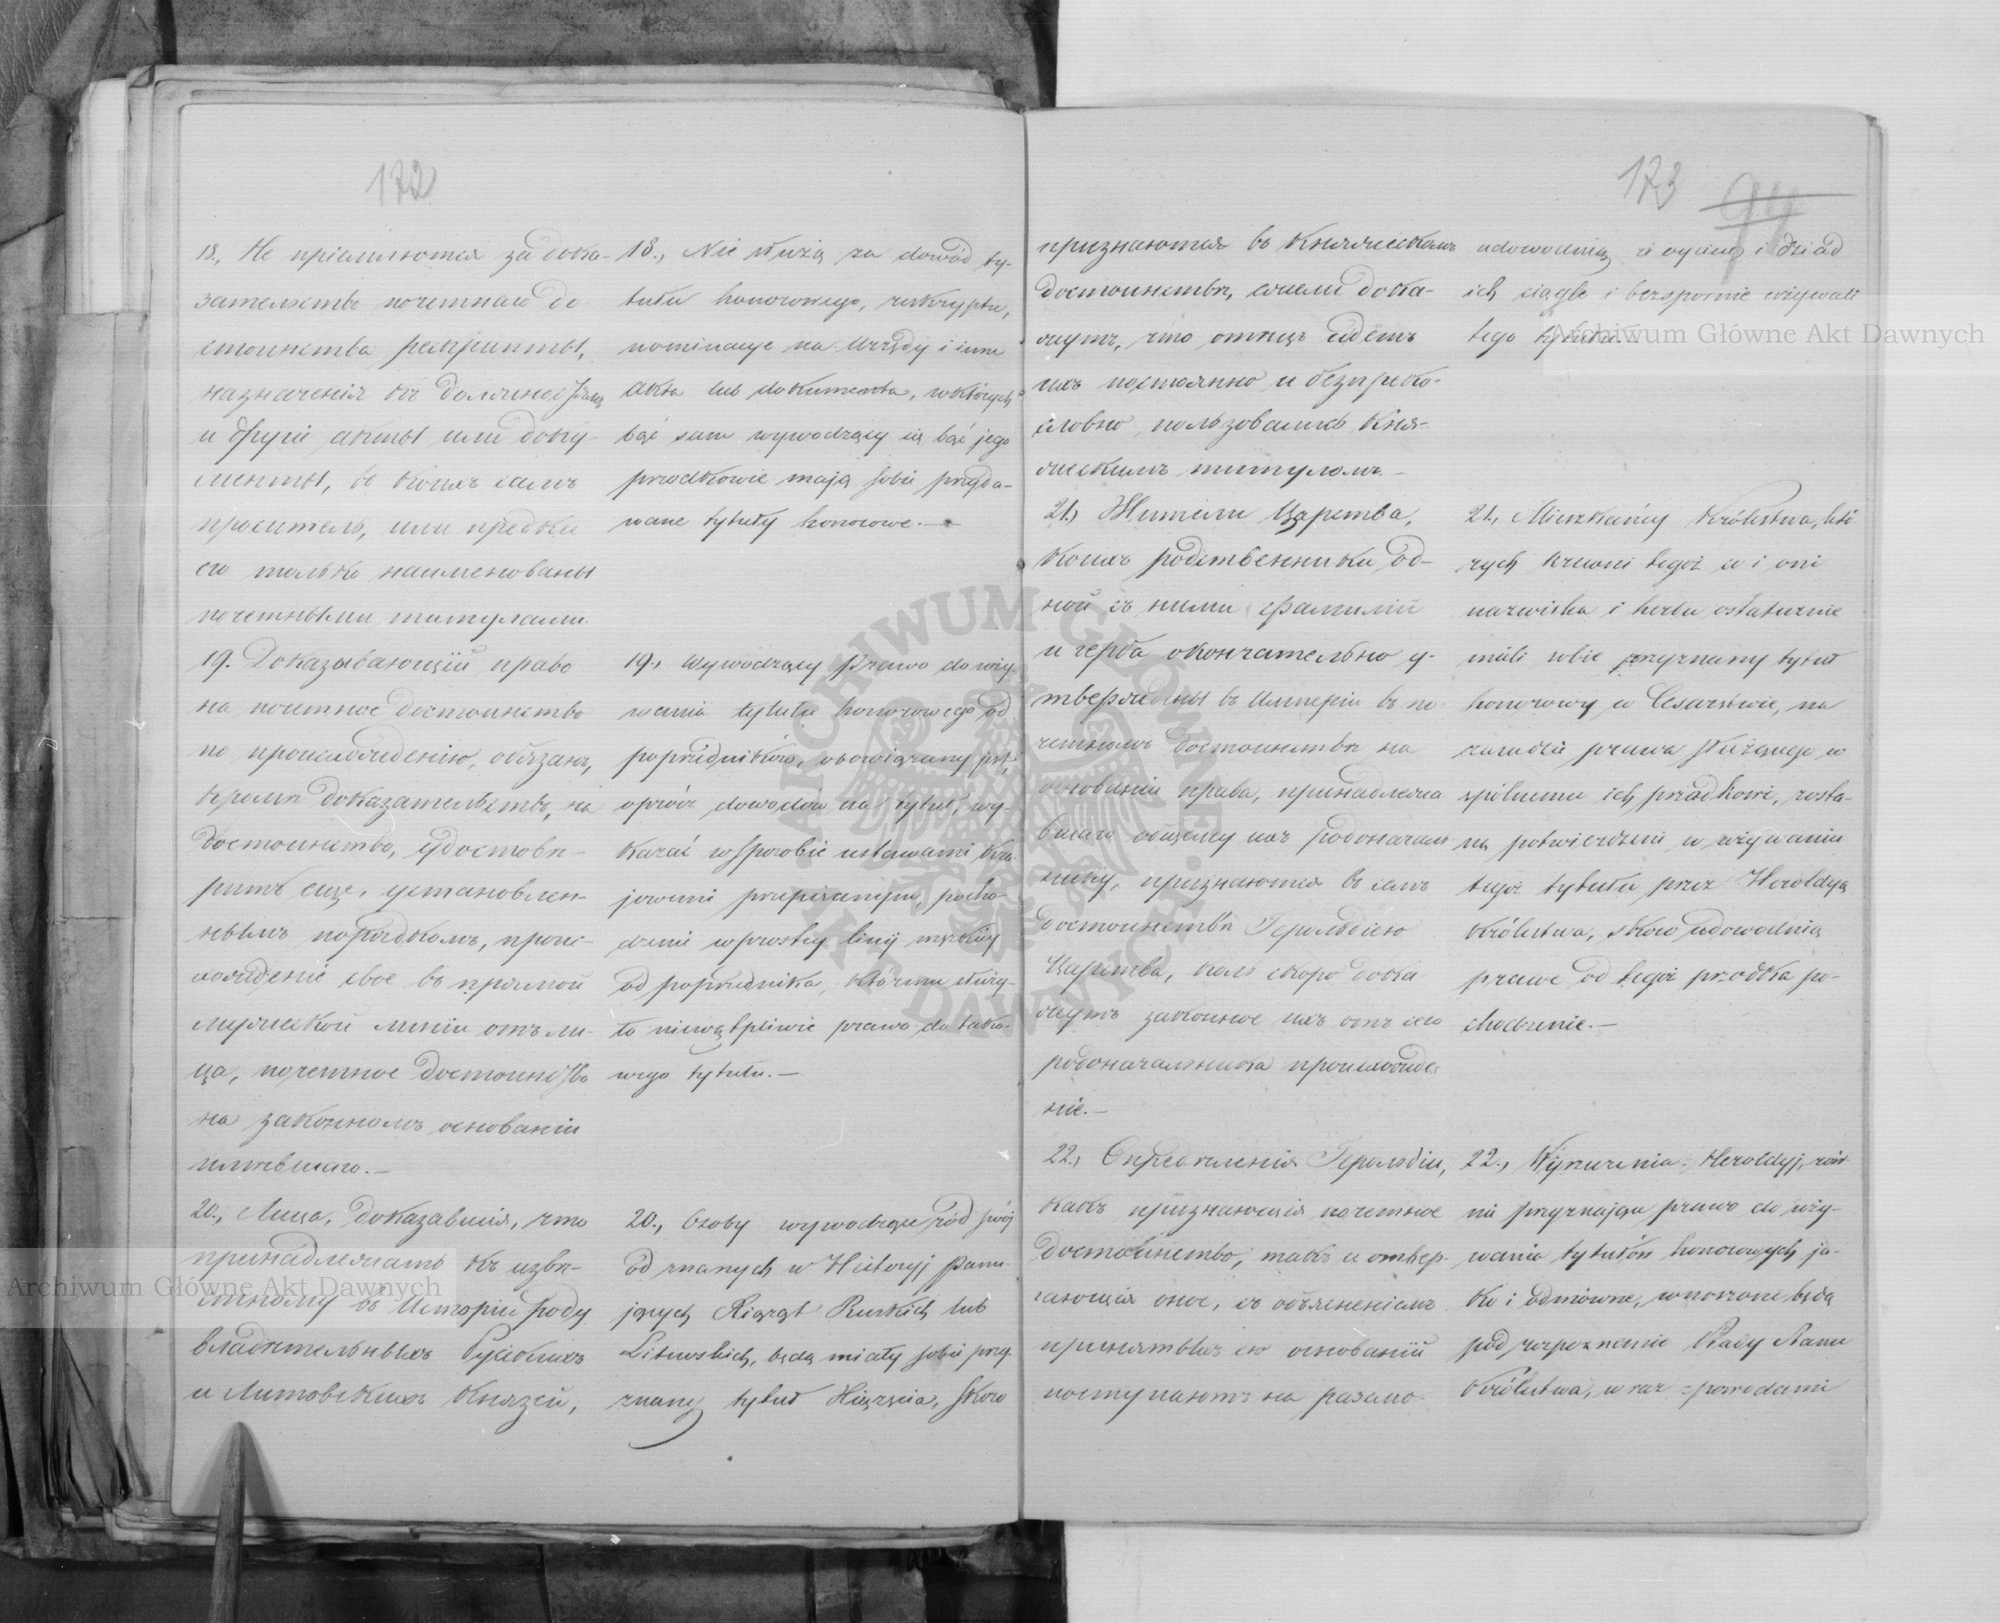 172
18., Не пріемлются за дока-
зательство почетнаго до
стоинства рескрипты,
назначенія къ должностямъ
и другіе акты или доку-
менты, въ коихъ самъ
проситель, или предки
его только наименованы
почетными титулами.
19. Доказывающій право
на почетное достоинство
по происхожденію, обязанъ,
кромѣ доказательствъ, на
достоинство, удостовѣ-
рить еще, установлен-
нымъ порядкомъ, проис-
хожденіе свое въ прямой
мужеской линіи отъ ли-
ца, почетное достоинство
на законномъ основаніи
имѣвшаго.—
20., Лица, доказавшія, что
принадлежатъ къ извѣ-
стному въ Исторіи роду
владѣтельныхъ Русскихъ
и Литовскихъ Князей,
18., Nie służą za dowód ty-
tułu honorowego, reskrypta,
nominacye na Urzędy i inne
akta lub dokumenta, w których
bąć sam wywodzący się bąć jego
przodkowie mają sobie przyda-
wane tytuły honorowe.—
19., Wywodzący prawo do uży-
wania tytułu honorowego od
poprzedników, obowiązany jest,
oprócz dowodów na tytuł, wy-
kazać w sposobie ustawami kra-
jowemi przepisanym, pocho-
dzenie w prostej linij męzkiéj
od poprzednika, któremu służy-
ło niewątpliwie prawo do tako-
wego tytułu.—
20., Osoby wywodzące ród swój
od znanych w Historyj panu-
jących Xiążąt Ruskich lub
Litewskich, będą miały sobie przy-
znany tytuł Xiążęcia, skoro
173
94
признаются въ Княжескомъ
достоинствѣ, если дока-
жутъ, что отецъ и дѣдъ
ихъ постоянно и безпреко-
словно пользовались Кня-
жескимъ титуломъ.—
21., Жители Царства,
коихъ родственники од-
ной съ ними фамиліи
и герба окончательно у-
тверждены въ Имперіи въ по-
четномъ достоинствѣ на
основаніи права, принадлежа
вшаго общему ихъ родоначаль
нику, признаются въ семъ
достоинствѣ Герольдіею
Царства, коль скоро дока
жутъ законное ихъ отъ сего
родоначальника происхожде-
ніе.—
22., Опредѣленія Герольдіи,
какъ признающія почетное
достоинство, такъ и отвер-
гающія оное, съ объясненіемъ
принятыхъ ею основаній
поступаютъ на разсмо-
udowodnią że ojciec i dziad
ich ciągle i bezspornie używali
tego tytułu.
21., Mieszkańcy Królestwa, któ-
rych krewni tegoż co i oni
nazwiska i herbu ostatecznie
mieli sobie przyznany tytuł
honorowy w Cesarstwie, na
zasadzie prawa służącego w
spólnemu ich przodkowi, zosta-
ną potwierdzeni w używaniu
tegoż tytułu przez Heroldyą
Królestwa, skoro udowodnią
prawe od tegoż przodka po-
chodzenie.—
22., Wyrzeczenia Heroldyj, rów
nie przyznające prawo do uży-
wania tytułów honorowych ja-
ko i odmówne, wnoszone będą
pod rozpoznanie Rady Stanu
Królestwa, wraz z powodami
Archiwum Główne Akt Dawnych
Archiwum Główne Akt Dawnych
ARCHIWUM GŁÓWNE AKT DAWNYCH